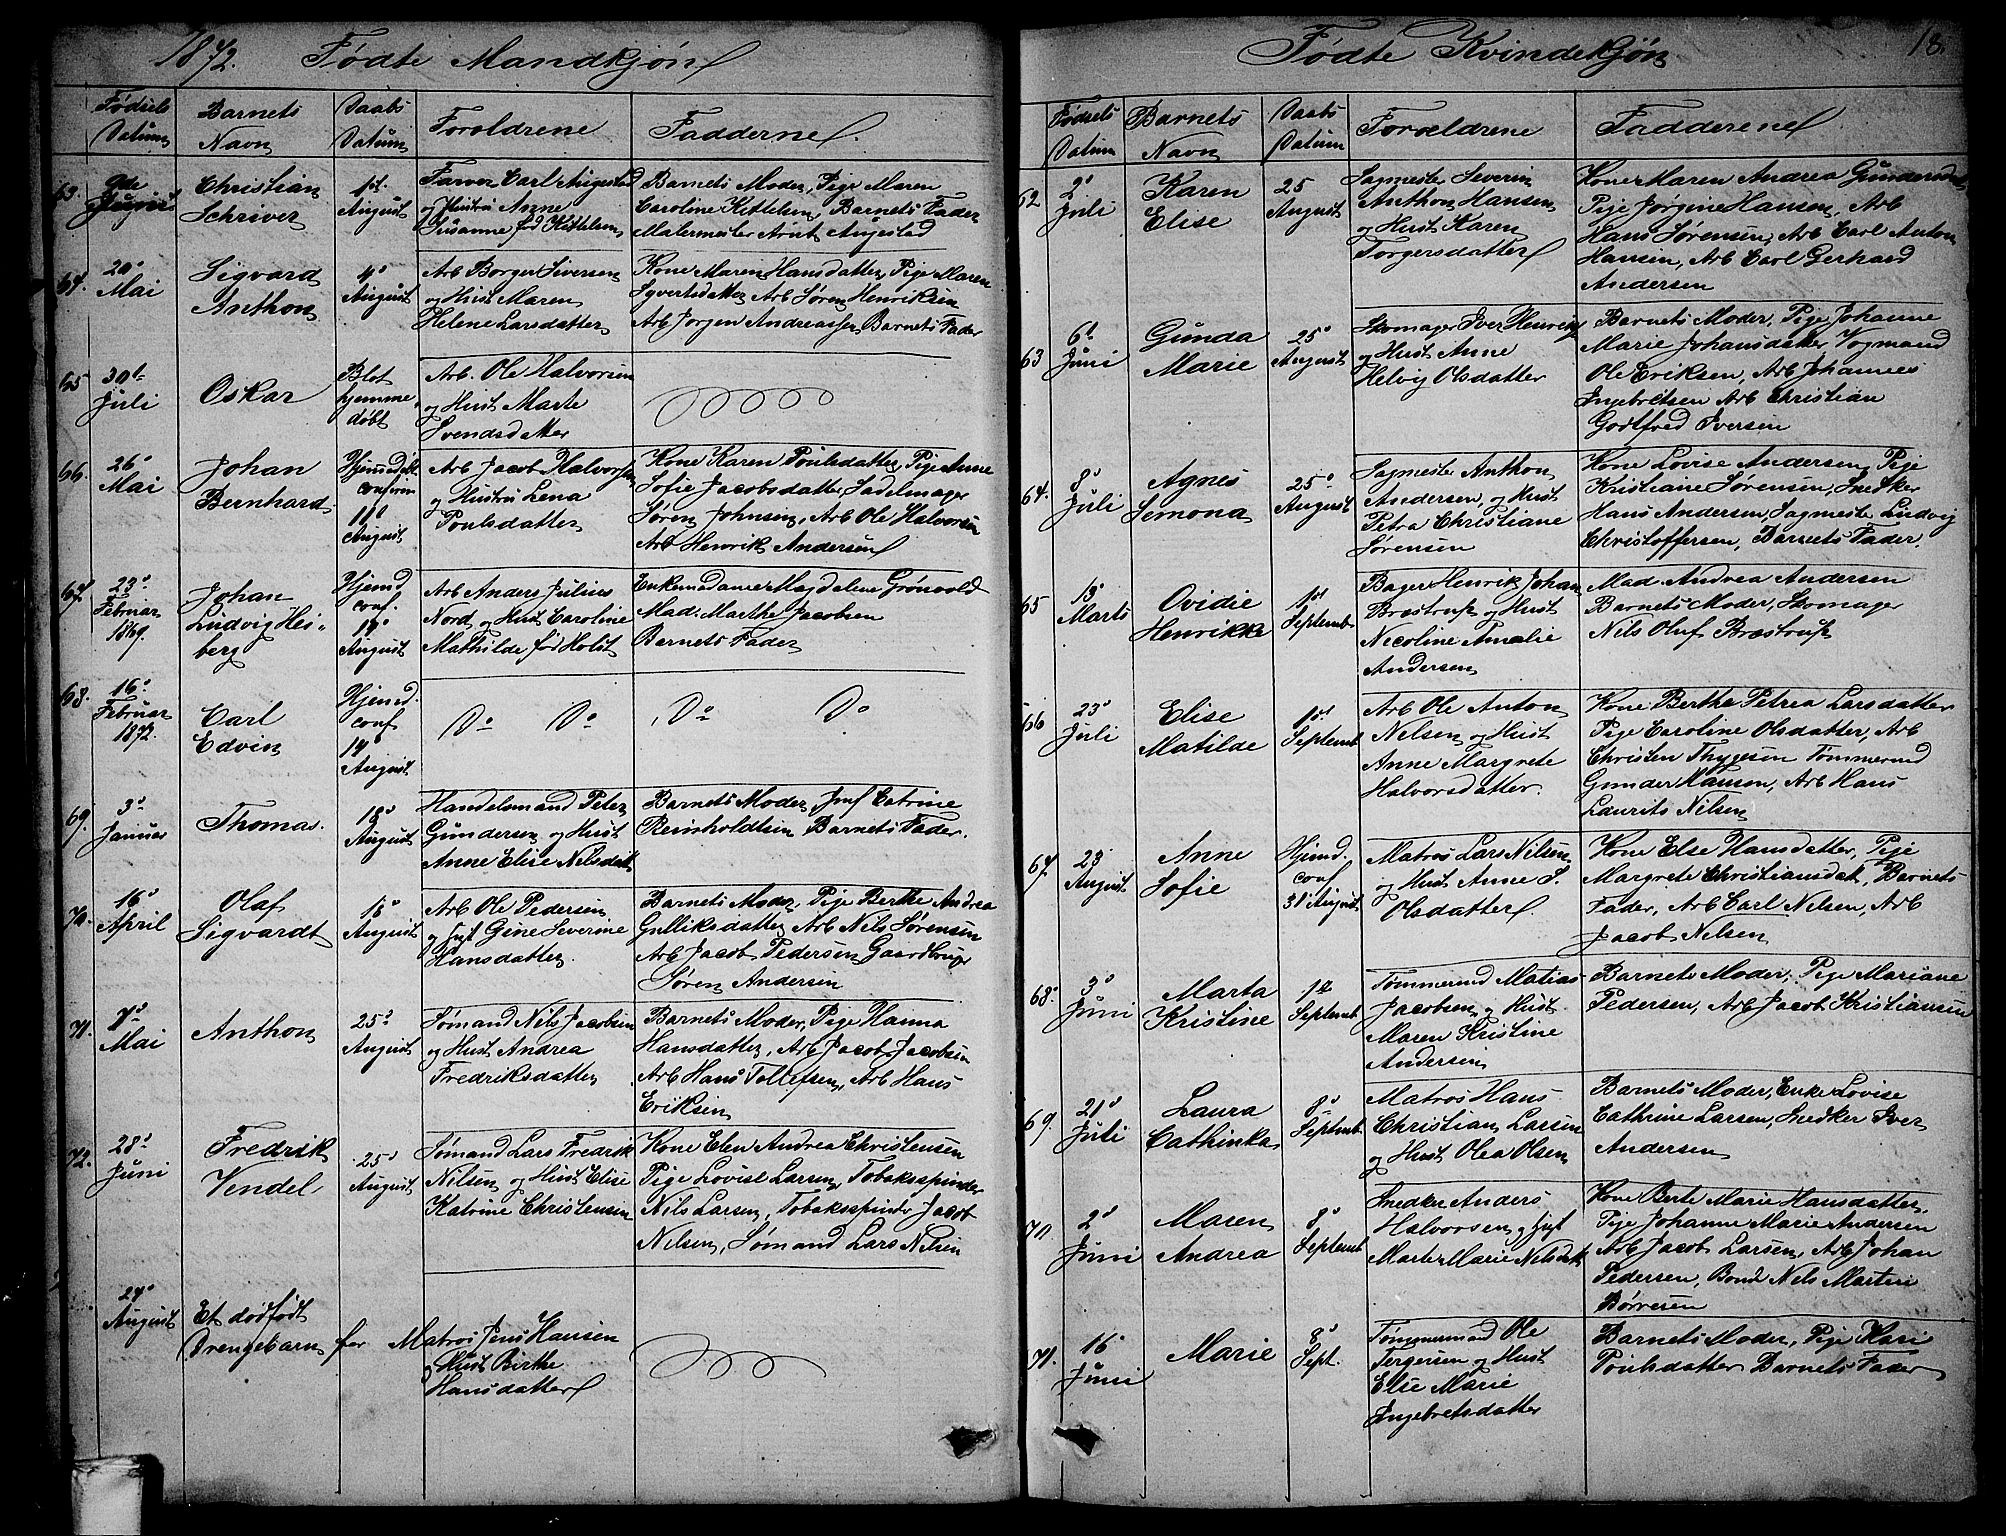 1872. Fødte Mandkjøn
Fødsels Datum
Barnets Navn
Daabs Datum
Foreldrene
Faddernes
63.
Christian Schriver
1st. August
Farver Carl Augestad
og Hustru Anne
Susanne fød Kittlesen
Barnets Moder, Pige Maren
Caroline Kittlesen, Barnets Fader
Malermester Arnt Augestad
64.
20d Mai
Sigvard Anthon
4d August
Arb Borger Siversen
og Hust Maren
Helene Larsdatter
Kone Maren Hansdatter, Pige Maren
Syvertsdatter Arb Søren Henriksen
Arb Jørgen Andreassen, Barnets Fader
65
30te Juli
Oskar
Blot hjemmedøbt
Arb. Ole Halvorsen
og Hust Marte
Svendsdatter
66.
26d Mai
Johan Bernhard
Hjemmedøbt confirm 11d August
Arb Jacob Halvorsen
og Hustru Lena
Poulsdatter
Kone Karen Poulsdatter, Pige Anne
Sofie Jacobsdatter, Sadelmager
Søren Johnsen, Arb Ole Halvorsen
Arb Henrik Andersen
67.
23d Februar 1869.
Johan Ludvig Heiberg
Hjemd conf. August
Arb Anders Julius
Nord og Hust Caroline
Mathilde fød Holst
Enkemadame Magdalene Grönvold
Mad. Marthe Jacobsen
Barnets Fader
68.
16d Februar 1872.
Carl Edvin
Hjemd conf 14d August
Do Do
Do Do
69.
3d Januar
Thomas.
18d August
Handelsmand Peter
Gundersen og Hust
Anne Elise Nilsdatt
Barnets Moder, Jmf Catrine
Reinholdtsen Barnets Fader.
70.
16d April
Olaf Sigvardt
18d August
Arb Ole Pedersen
og Hust Gine Severine
Hansdatter.
Barnets Moder, Pige Berthe Andrea
Gulliksdatter, Arb Nils Sørensen
Arb Jacob Pedersen Gaardbruger
Søren Andersen
71.
7d Mai
Anthon
25d August
Sømand Nils Jacobsen
og Hust Andrea
Fredriksdatter
Barnets Moder, Pige Hanna
Hansdatter, Arb Jacob Jacobsen
Arb Hans Tollefsen, Arb Hans
Eriksen
72.
28d Juni
Fredrik Vendel
25d August
Sømand Lars Fredrik
Nilsen og Hust Elise
Katrine Christensen
Kone Elen Andrea Christensen
Pige Lovise Larsen, Tobaksspinder
Nils Larsen, Tobaksspinder Jacob
Nilsen, Sømand Lars Nilsen
August
Et dødfødt
Drengebarn for
Matros Jens Hansen
og Hust Birthe
Hansdatter
Fødte Kvindekjøn
18.
Fødsels Datum
Barnets Navn
Daabs Datum
Forældrene
Fadderene
62
2d Juli
Karen Elise
25 August
Sagmester Severin
Anthon Hansen
og Hust Karen
Torgersdatter
Kone Maren Andrea Gundersdatter
Pige Jørgine Hansen, Arb
Hans Sørensen, Arb Carl Anton
Hansen, Arb Carl Gerhard
Andersen
63
6d Juni
Gunda Marie
25d August
Skomager Iver Henriks
og Hust Anne
Helvig Olsdatter
Barnets Moder, Pige Johanne
Marie Johansdatter Vognmand
Ole Eriksen, Arb Johannes
Ingebretsen Arb Christian
Godtfred Iversen
64.
8d Juli
Agnes Semona
25d August
Sagmester Anthon
Andersen, og Hust
Petra Christiane
Sørensen
Kone Lovise Andersen, Pige
Kristiane Sørensen, Snedker
Hans Andersen, Sagmester Ludvig
Christoffersen, Barnets Fader.
65
Marts
Ovidie Henrikke
1st Septemb
Bager Henrik Johan
Brøstrup og Hust
Nicoline Amalie
Andersen
Mad. Andrea Andersen
Barnets Moder, Skomager
Nils Oluf Brøstrup
66
23d Juli
Elise Matilde
1st Septemb
Arb Ole Anton
Nelsen og Hust
Anne Margrete
Halvorsdatter.
Kone Berthe Petrea Larsdatter
Pige Caroline Olsdatter, Arb
Christen Thygesen Tømmermd
Gunder Hansen, Arb Hans
Laurits Nilsen
67.
23 August
Anne Sofie
Hjemd. conf 31 August
Matros Lars Nilsen
og Hust Anne S.
Olsdatter.
Kone Else Hansdatter, Pige
Margrete Christiansdat, Barnets
Fader, Arb Carl Nilsen, Arb
Jacob Nilsen
68.
3d Juni
Marta Kristine
1st Septemb
Tømmermd Matias
Jacobsen og Hust
Maren Kristine
Andersen
Barnets Moder, Pige Mariane
Pedersen, Arb Jacob Kristiansen
69.
21d Juli
Laura Cathinka
8d Septemb.
Matros Hans
Christian Larsen
og Hust Olea Olsen
Barnets Moder, Enke Lovise
Cathrine Larsen, Snedker Iver
Andersen
70.
2d Juni
Maren Andrea
8d Septemb
Snedker Anders
Halvorsen, og Hust
Marte Marie Nilsdatt
Kone Berte Marie Hansdatter,
Pige Johanne Marie Andersen
Arb Jacob Larsen, Arb Johan
Pedersen, Bonde Nils Martin
Børresen
71.
16d Juni
Marie
8d Sept.
Tømmermand Ole
Tergersen og Hust
Else Marie
Ingebretsdatter
Barnets Moder, Pige Kari
Poulsdatter Barnets Fader